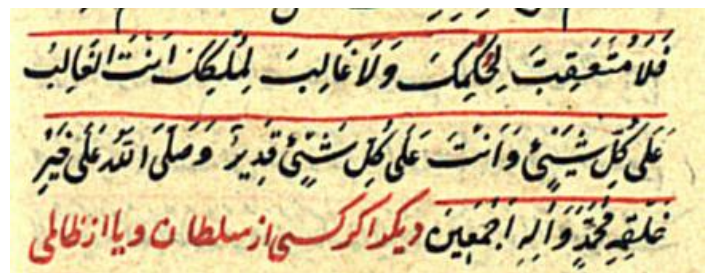 فَلَا مُتَعَقِّبَ لِحُكْمِكَ وَلَا غَالِبَ لِمُلْكِكَ اَنْتَ الْغَالِبُ
عَلٰى كُلِّ شَيْئٍ وَاَنْتَ عَلٰى كُلِّ شَيْئٍ قَدِيرٌ وَصَلَّى اللّٰهُ عَلٰى خَيْرِ
خَلْقِهِ مُحَمَّدٍ وَاٰلِهِ اَجْمَعِينَ دیکر اکر کسی از سلطان ویا از ظالمی